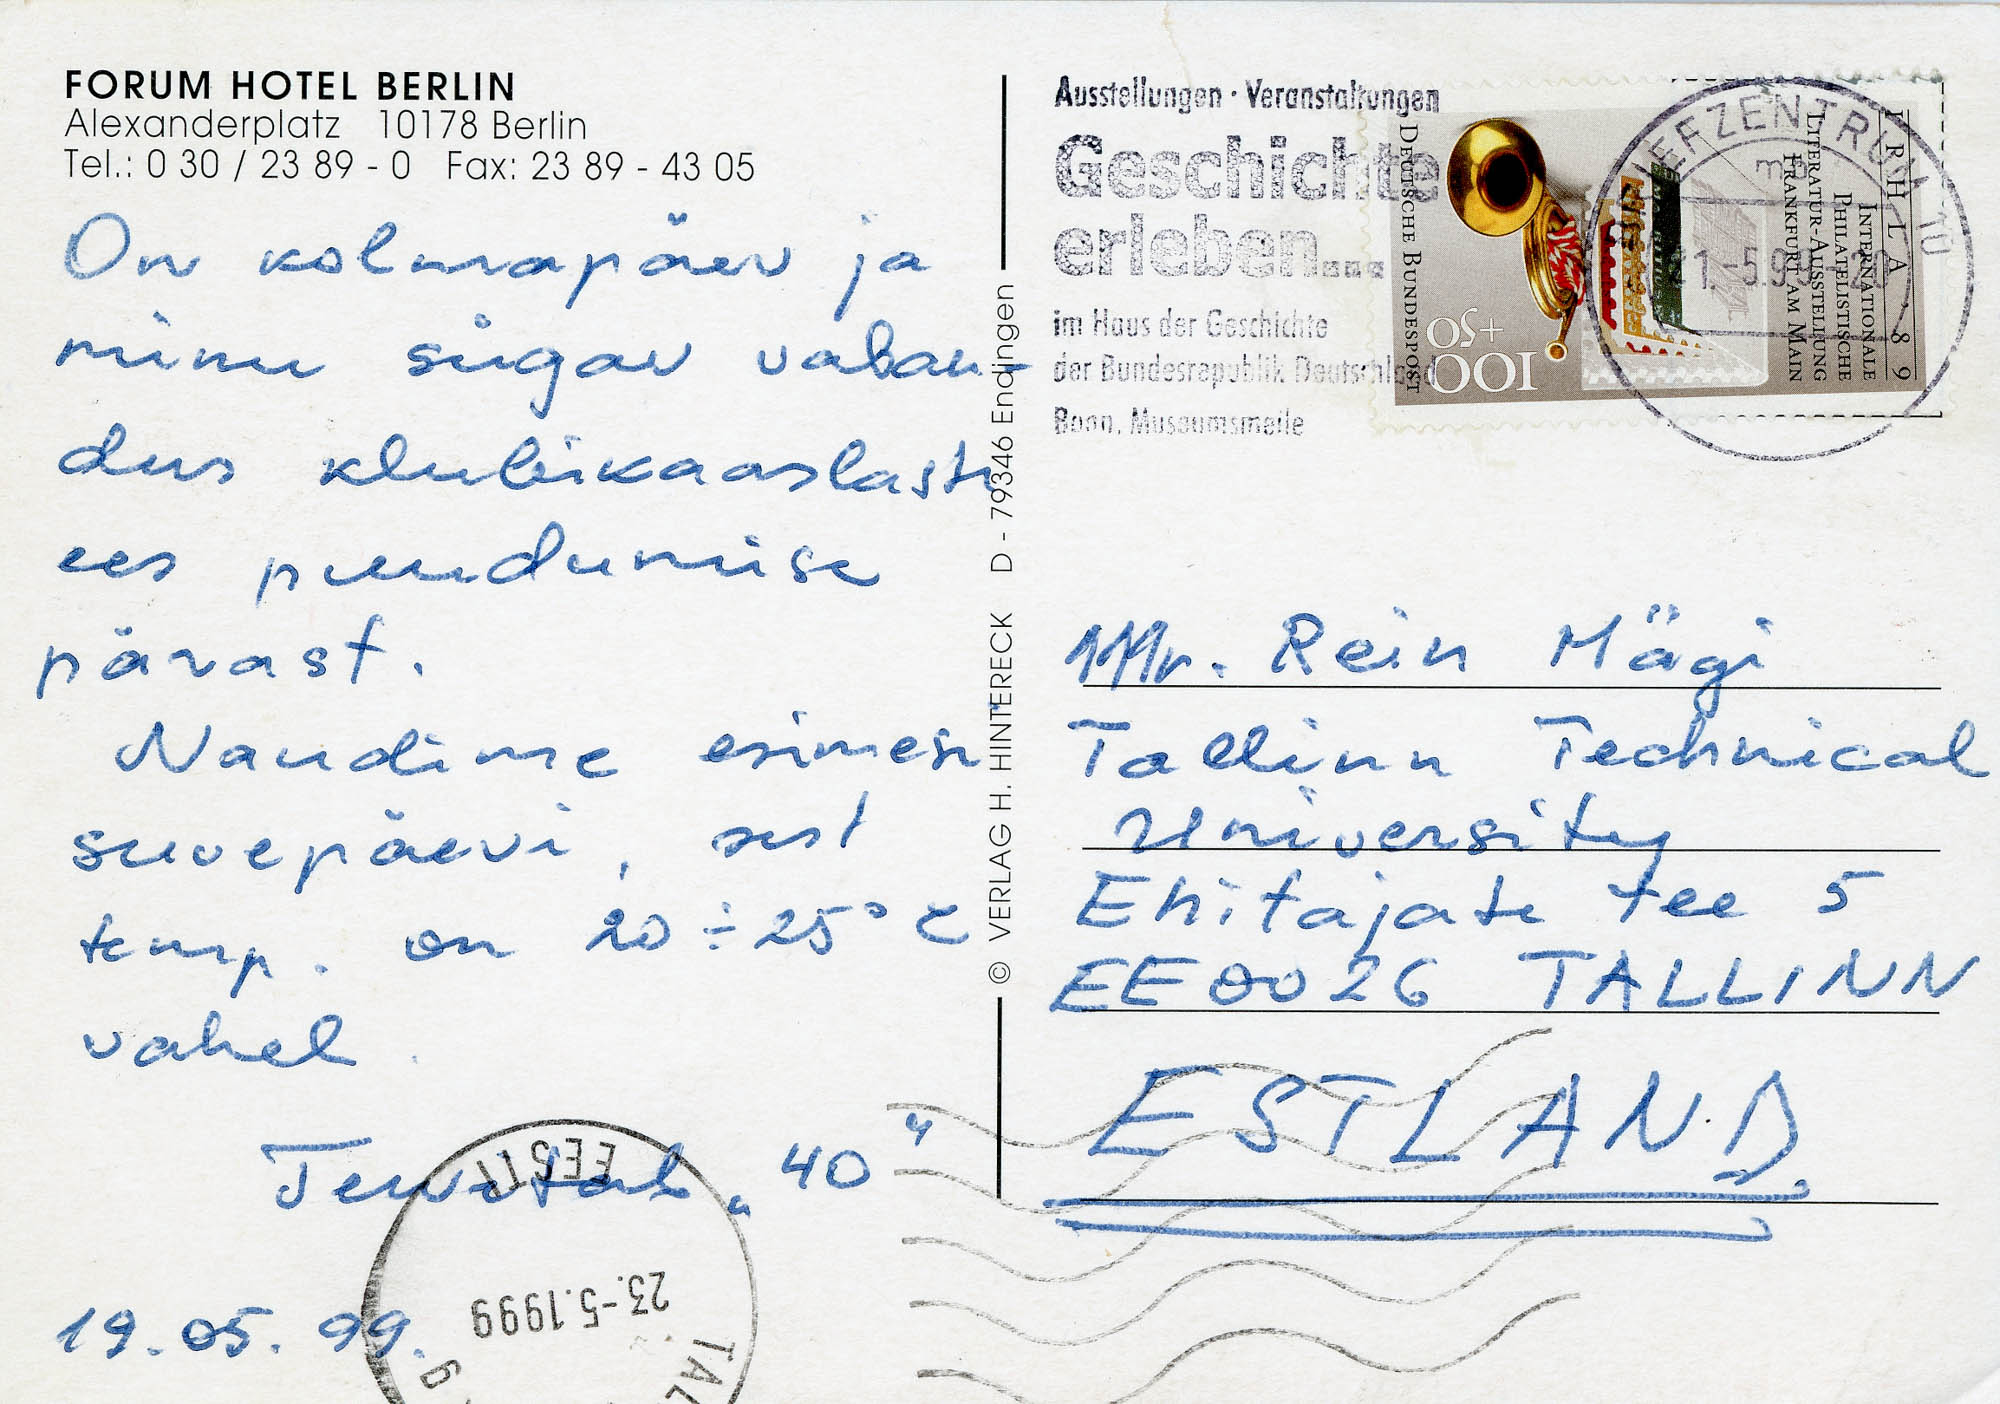 FORUM HOTEL BERLIN
Alexanderplatz 10178 Berlin
Tel.: 0 30 / 23 89 - 0 Fax: 23 89 - 43 05
On kolmapäev ja
minu sügav vaban-
dus klubikaaslaste
ees puudumise
pärast.
Naudime esimesi
suvepäevi, sest
temp. on 20 ÷ 25° C
vahel.
Tervitab „40"
19.05.99.
EESTI
23.-5.1999
© VERLAG H. HINTERECK D - 79346 Endingen
Ausstellungen · Veranstaltungen
Geschichte
erleben...
im Haus der Geschichte
der Bundesrepublik Deutschland
Bonn, Museumsmeile
DEUTSCHE BUNDESPOST
100
+50
IPHLA '89
INTERNATIONALE
PHILATELISTISCHE
LITERATUR-AUSSTELLUNG
FRANKFURT AM MAIN
BRIEFZENTRUM 10
Mr. Rein Mägi
Tallinn Technical
University
Ehitajate tee 5
EE0026 TALLINN
ESTLAND